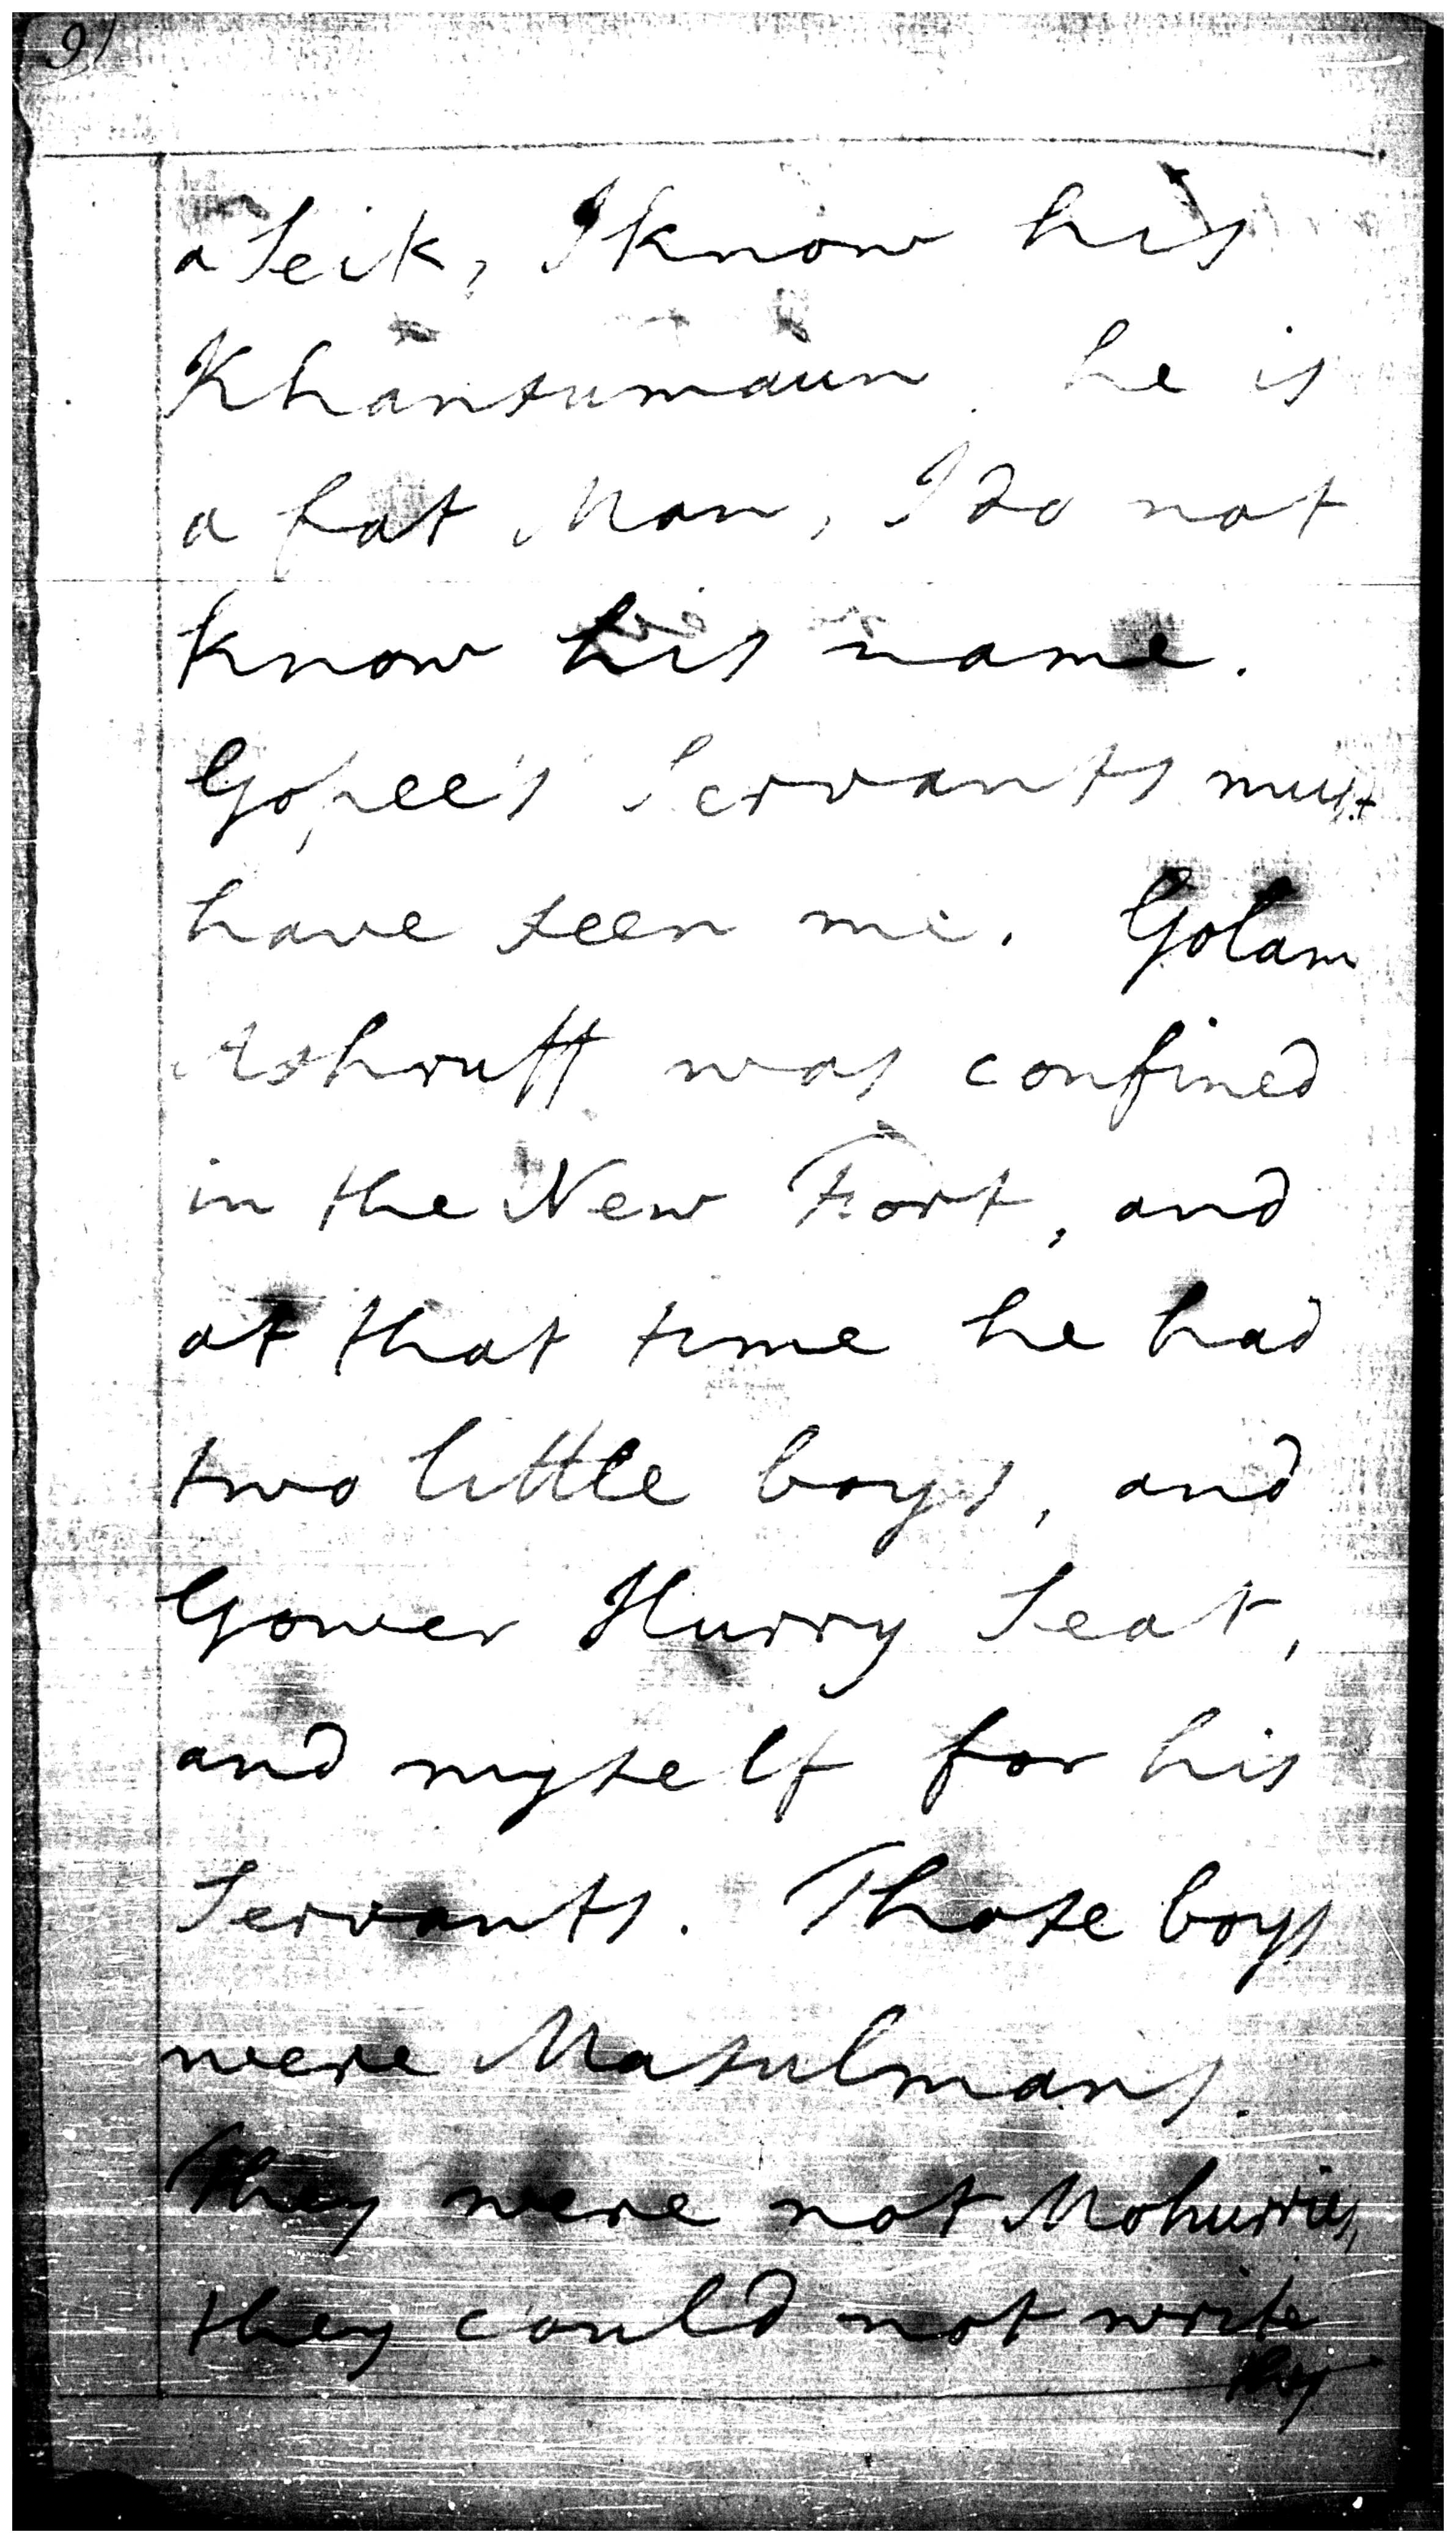 9)
a Seik, I know his
Khansumaun he is
a fat Man, I do not
know his name.
Gopee's Servants must
have seen me. Golam
Ashruff was confined
in the New Fort, and
at that time he had
two little boys, and
Gower Hurry Seat,
and myself for his
Servants. Those boys
were Masulmans.
They were not Mohurries,
they could not write
they